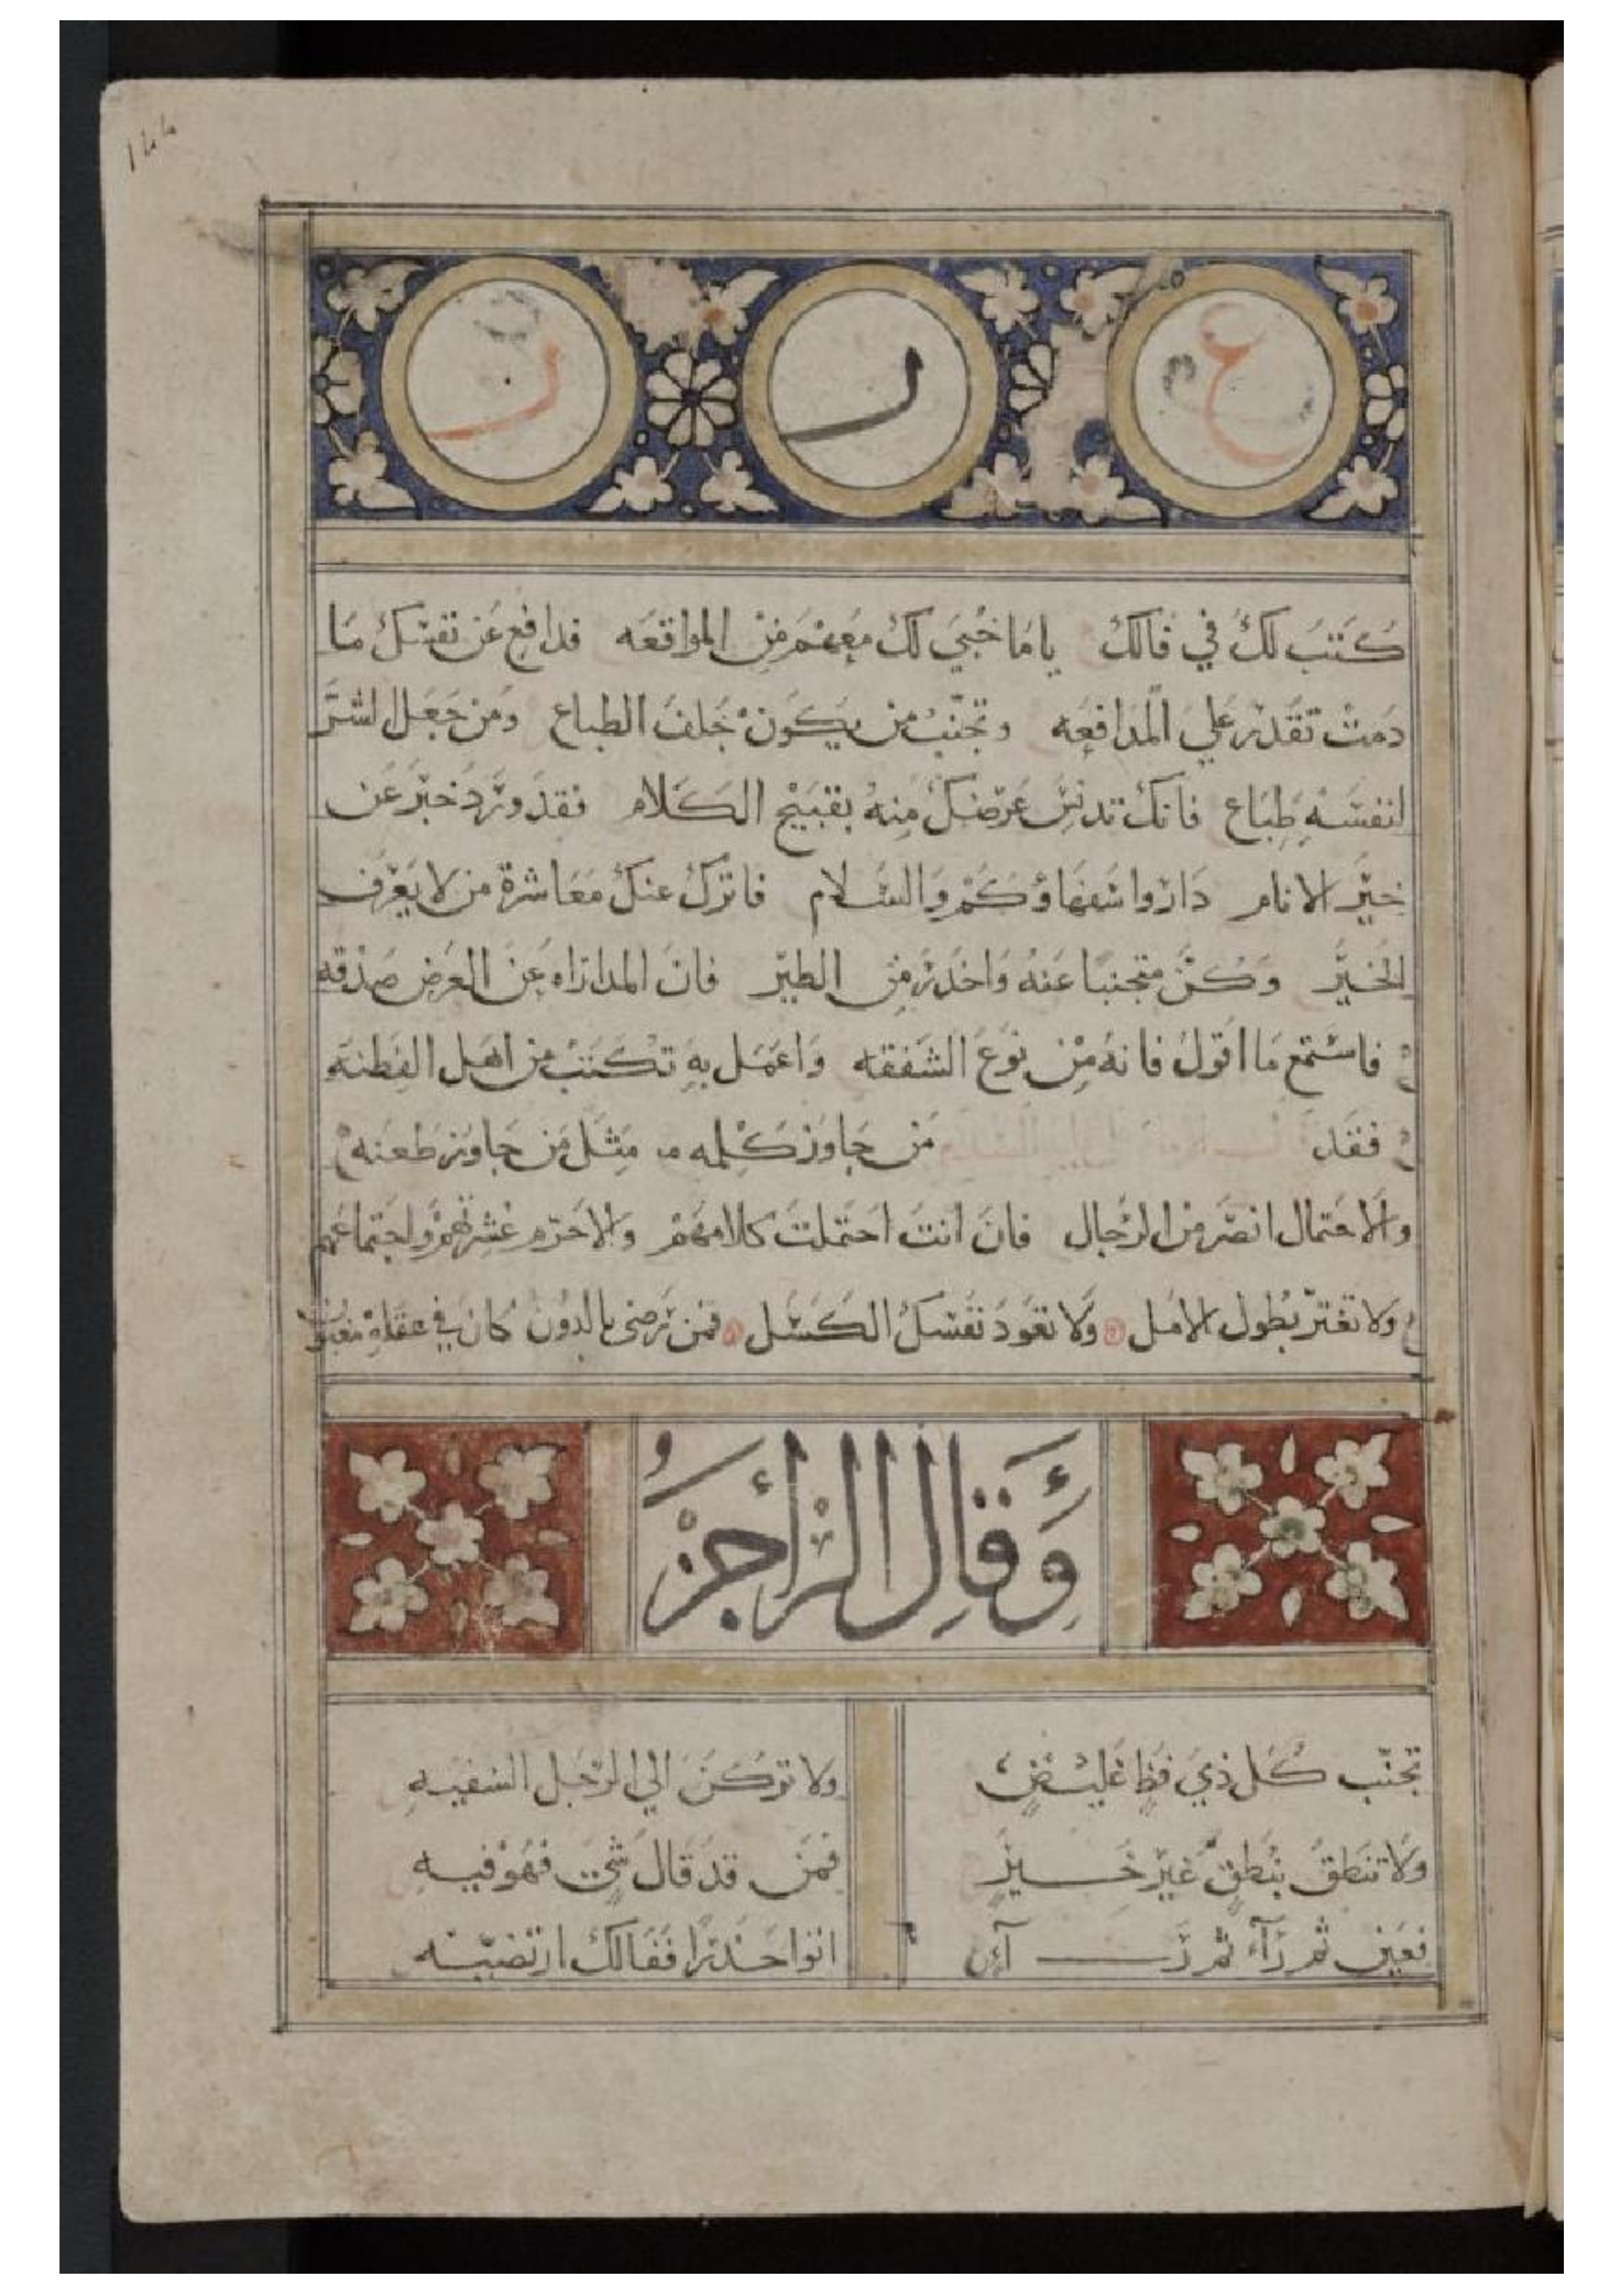 ع ر ر
كتب لك في فالك يا ما خبي لك معهم من المواقعه فدافع عن نفسك ما
دمت تقدر علي المدافعه وتجنب من يكون جلف الطباع ومن جعل الشر
لنفسه طباع فانك تدنس عرضك منه بقبيح الكلام فقد ورد خبر عن
خير الانام داروا سفهاؤكم والسلام فاترك عنك معاشرة من لا يعرف
الخير وكن متجنبا عنه واحذر من الطير فان المداراه عن العرض صدقه
فاستمع ما اقول فانه من نوع الشفقه واعمل به تكتب من اهل الفطنه
فقد من جاوز كلمه مثل من جاوز طعنه
والاحتمال انصر من الرجال فان انت احتملت كلامهم والا احرم عشرتهم واجتماعهم
ولا تغتر بطول الامل ولا تعود نفسك الكسل فمن رضي بالدون كان في عقله مغبون
وقال الراجز
تجنب كل ذي فظا غليض ولا تركن الي الرجل السفيه
ولا تنطق بنطق غير خير فمن قد قال شي فهو فيه
فعين ثم راء ثم راء اتوا حذرا ففالك ارتضيته